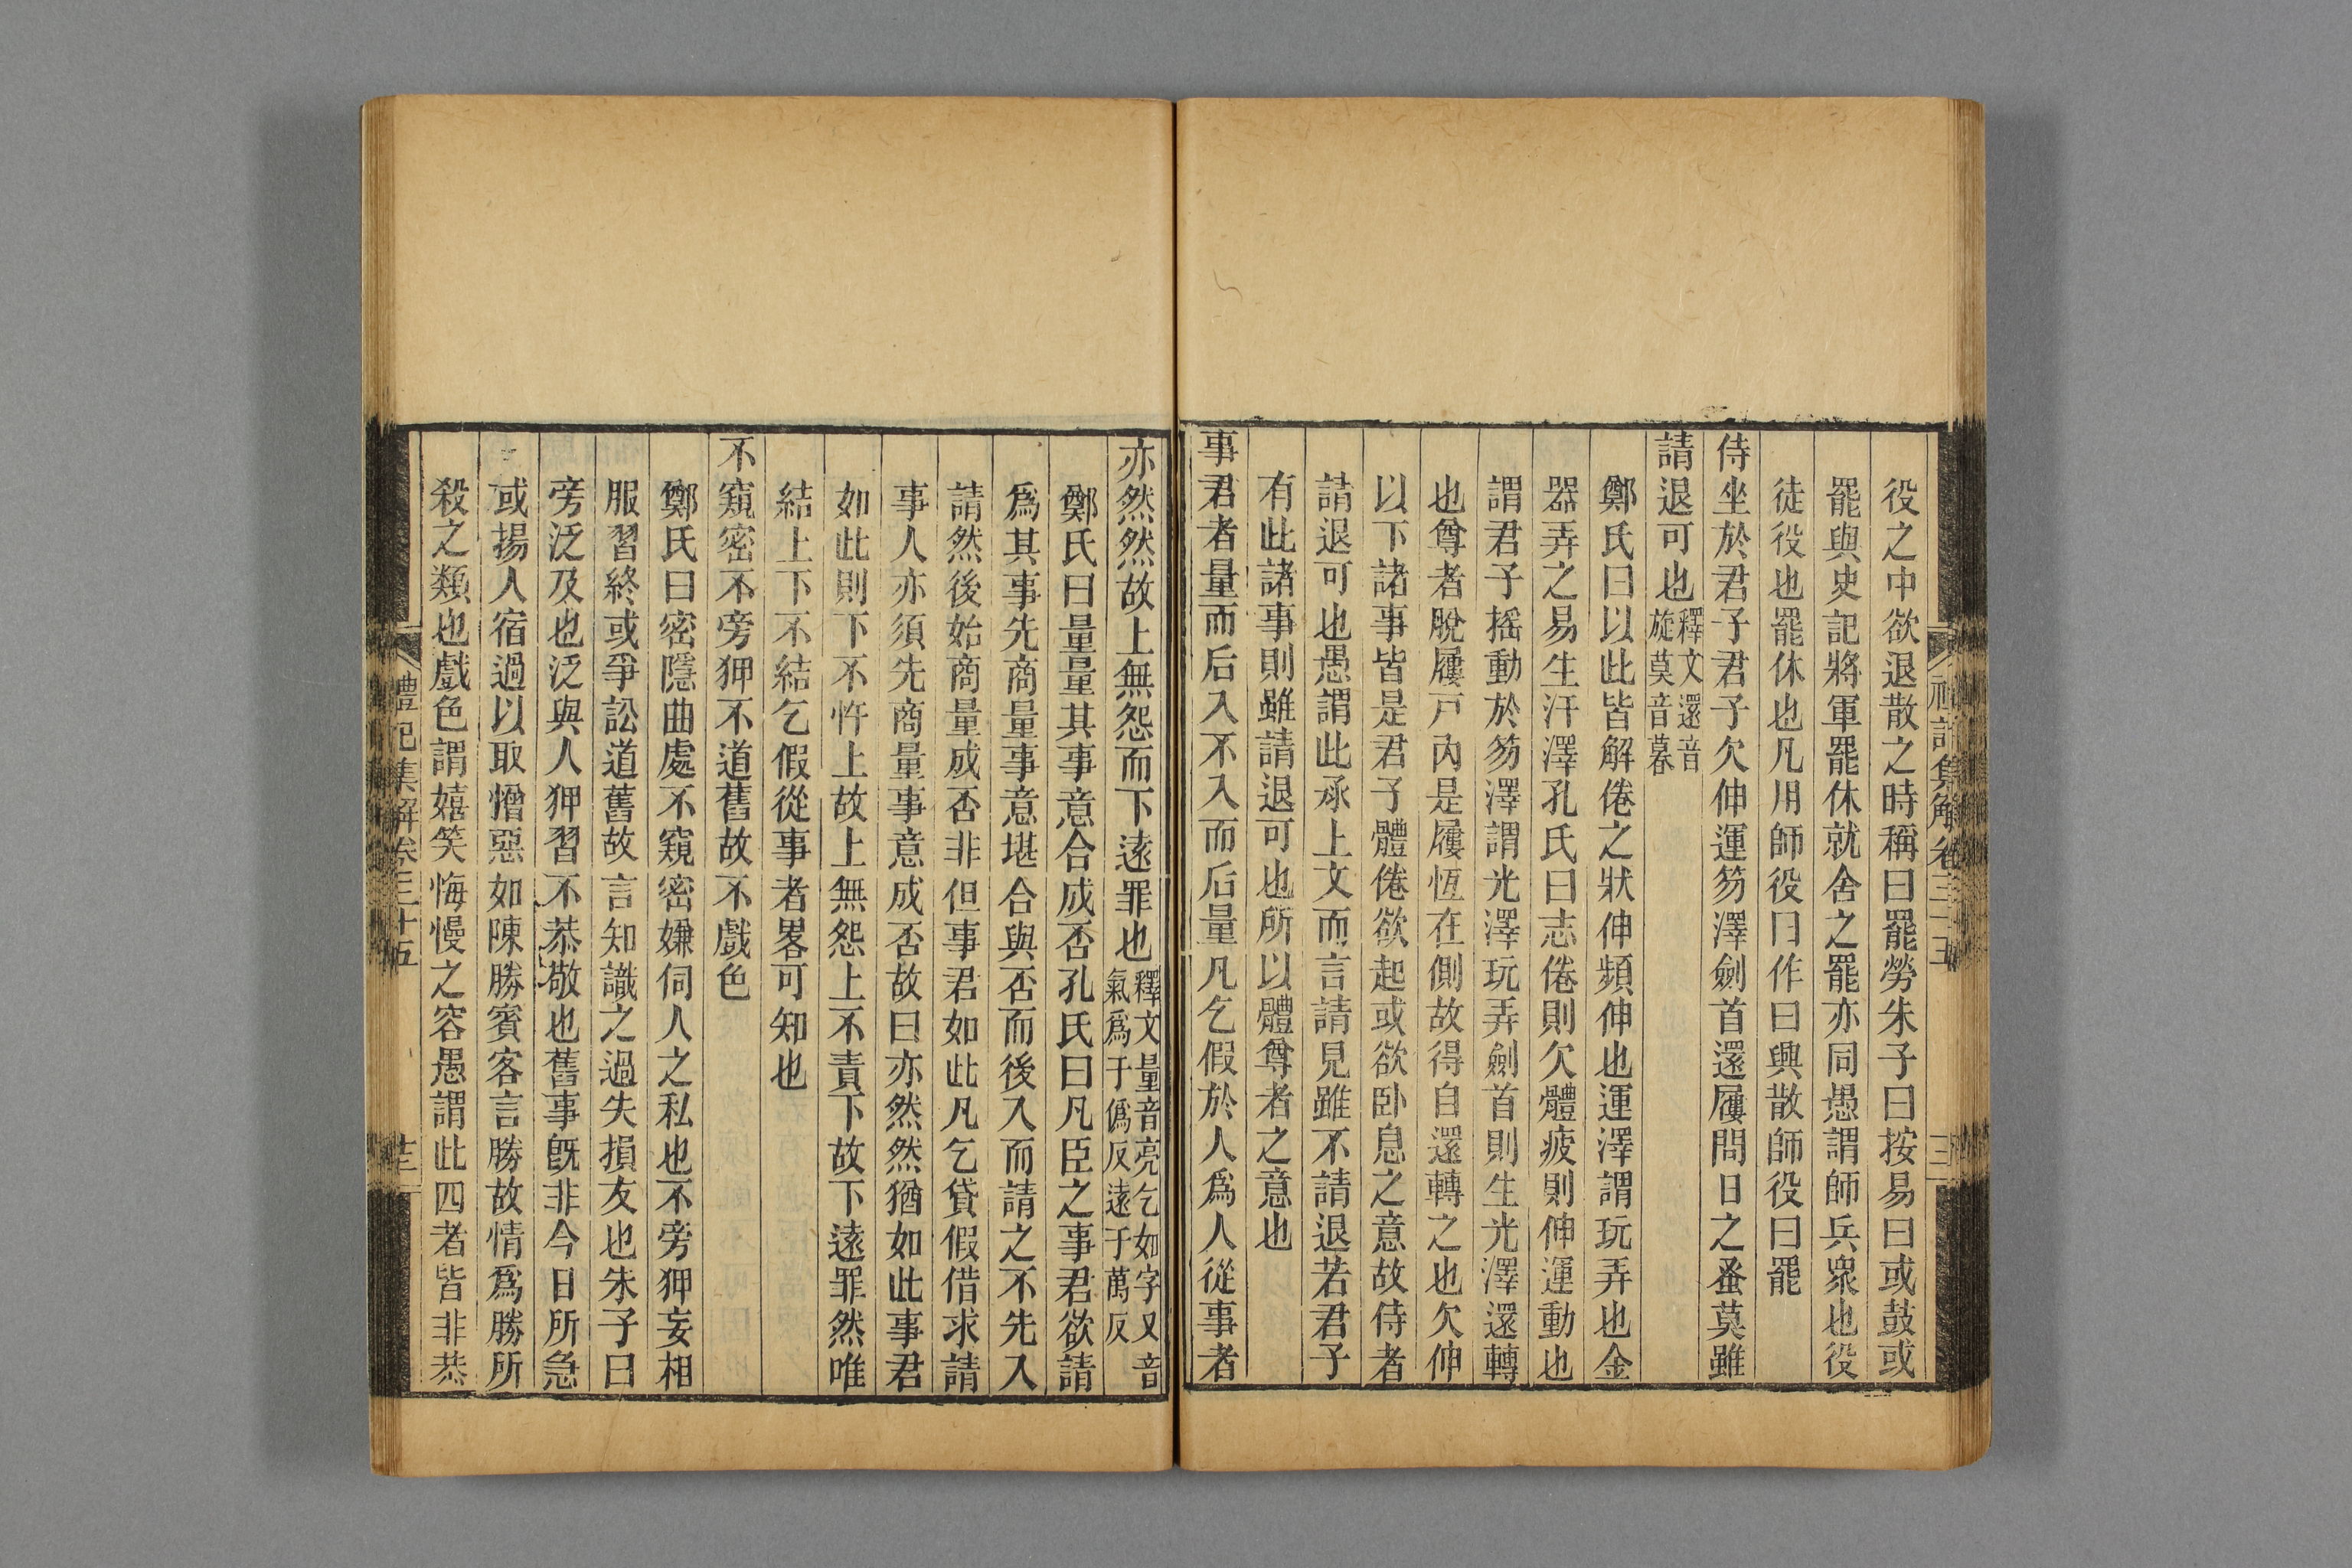 役之中欲退散之時稱曰罷勞朱子曰按易曰或鼓或
罷與史記將軍罷休就舍之罷亦同愚謂師兵眾也役
徒役也罷休也凡用師役日作曰興散師役曰罷
侍坐於君子君子欠伸運笏澤劍首還屨問日之蚤莫雖
請退可也釋文還音旋莫音暮
鄭氏曰以此皆解倦之狀伸頻伸也運澤謂玩弄也金
器弄之易生汗澤孔氏曰志倦則欠體疲則伸運動也
謂君子搖動於笏澤謂光澤玩弄劍首則生光澤還轉
也尊者脫屨戸內是屨恆在側故得自還轉之也欠伸
以下諸事皆是君子體倦欲起或欲卧息之意故侍者
請退可也愚謂此承上文而言請見雖不請退若君子
有此諸事則雖請退可也所以體尊者之意也
事君者量而后入不入而后量凡乞假於人爲人從事者
亦然然故上無怨而下遠罪也釋文量音亮乞如字又音氣爲于僞反遠于萬反
鄭氏曰量量其事意合成否孔氏曰凡臣之事君欲請
爲其事先商量事意堪合與否而後入而請之不先入
請然後始商量成否非但事君如此凡乞貸假借求請
事人亦須先商量事意成否故曰亦然然猶如此事君
如此則下不忤上故上無怨上不責下故下遠罪然唯
結上下不結乞假從事者畧可知也
不窺密不旁狎不道舊故不戲色
鄭氏曰密隱曲處不窺密嫌伺人之私也不旁狎妄相
服習終或爭訟道舊故言知識之過失損友也朱子曰
旁泛及也泛與人狎習不恭敬也舊事旣非今日所急
或揚人宿過以取憎惡如陳勝賓客言勝故情爲勝所
殺之類也戲色謂嬉笑悔慢之容愚謂此四者皆非恭
禮記集解卷三十五